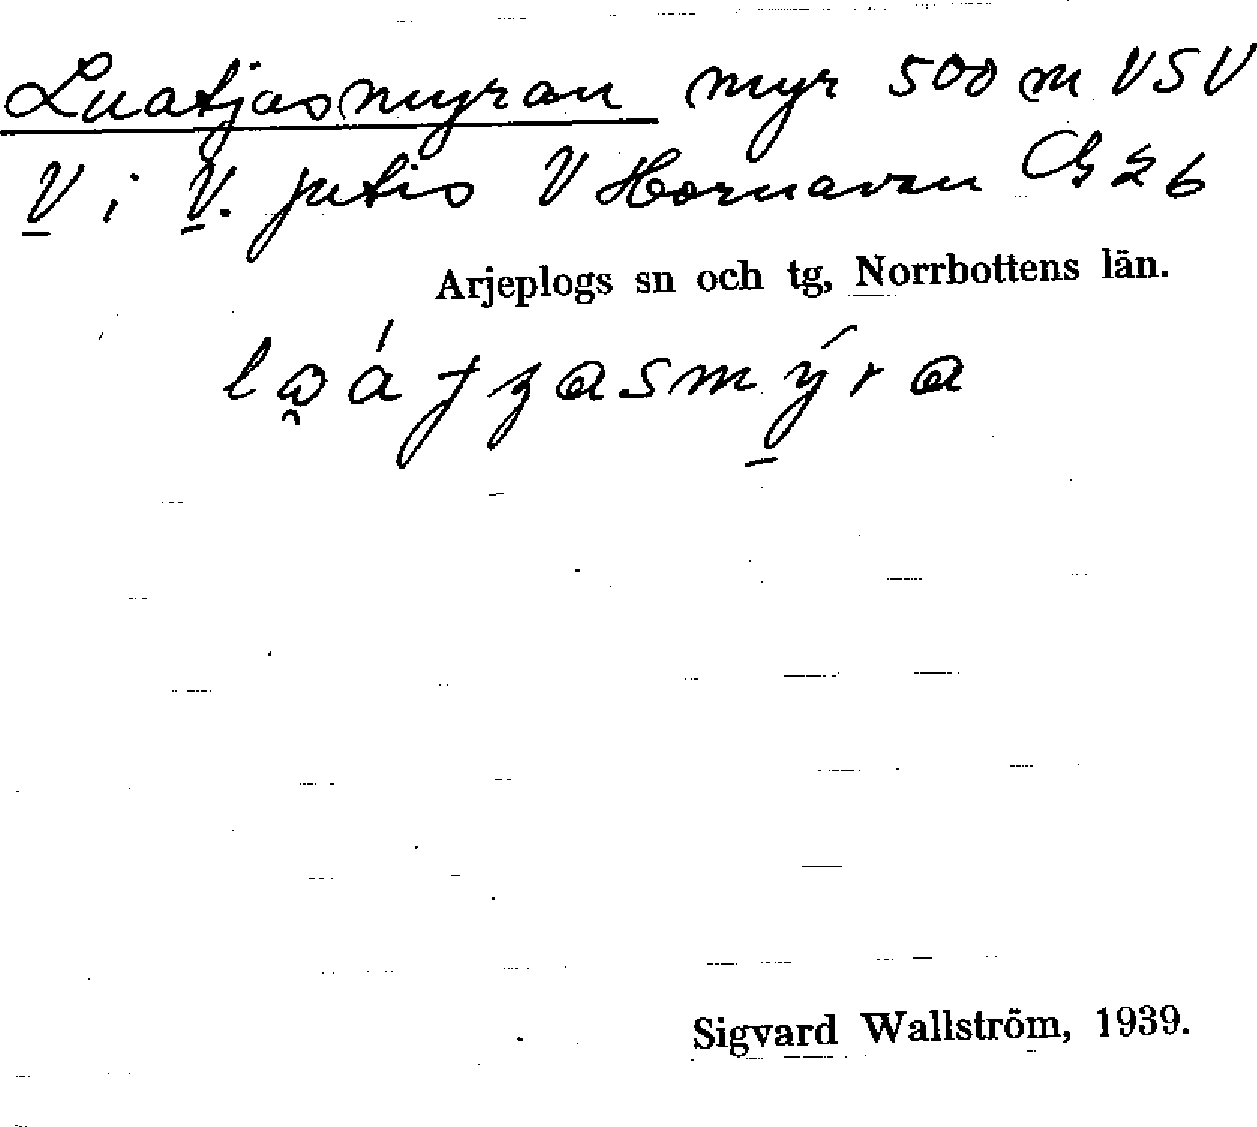 Luatjasmyran myr 500 m VSV
V i V. Jutis V Hornavan Gb 26
Arjeplogs sn och tg, Norrbottens län.
Sigvard Wallström, 1939.